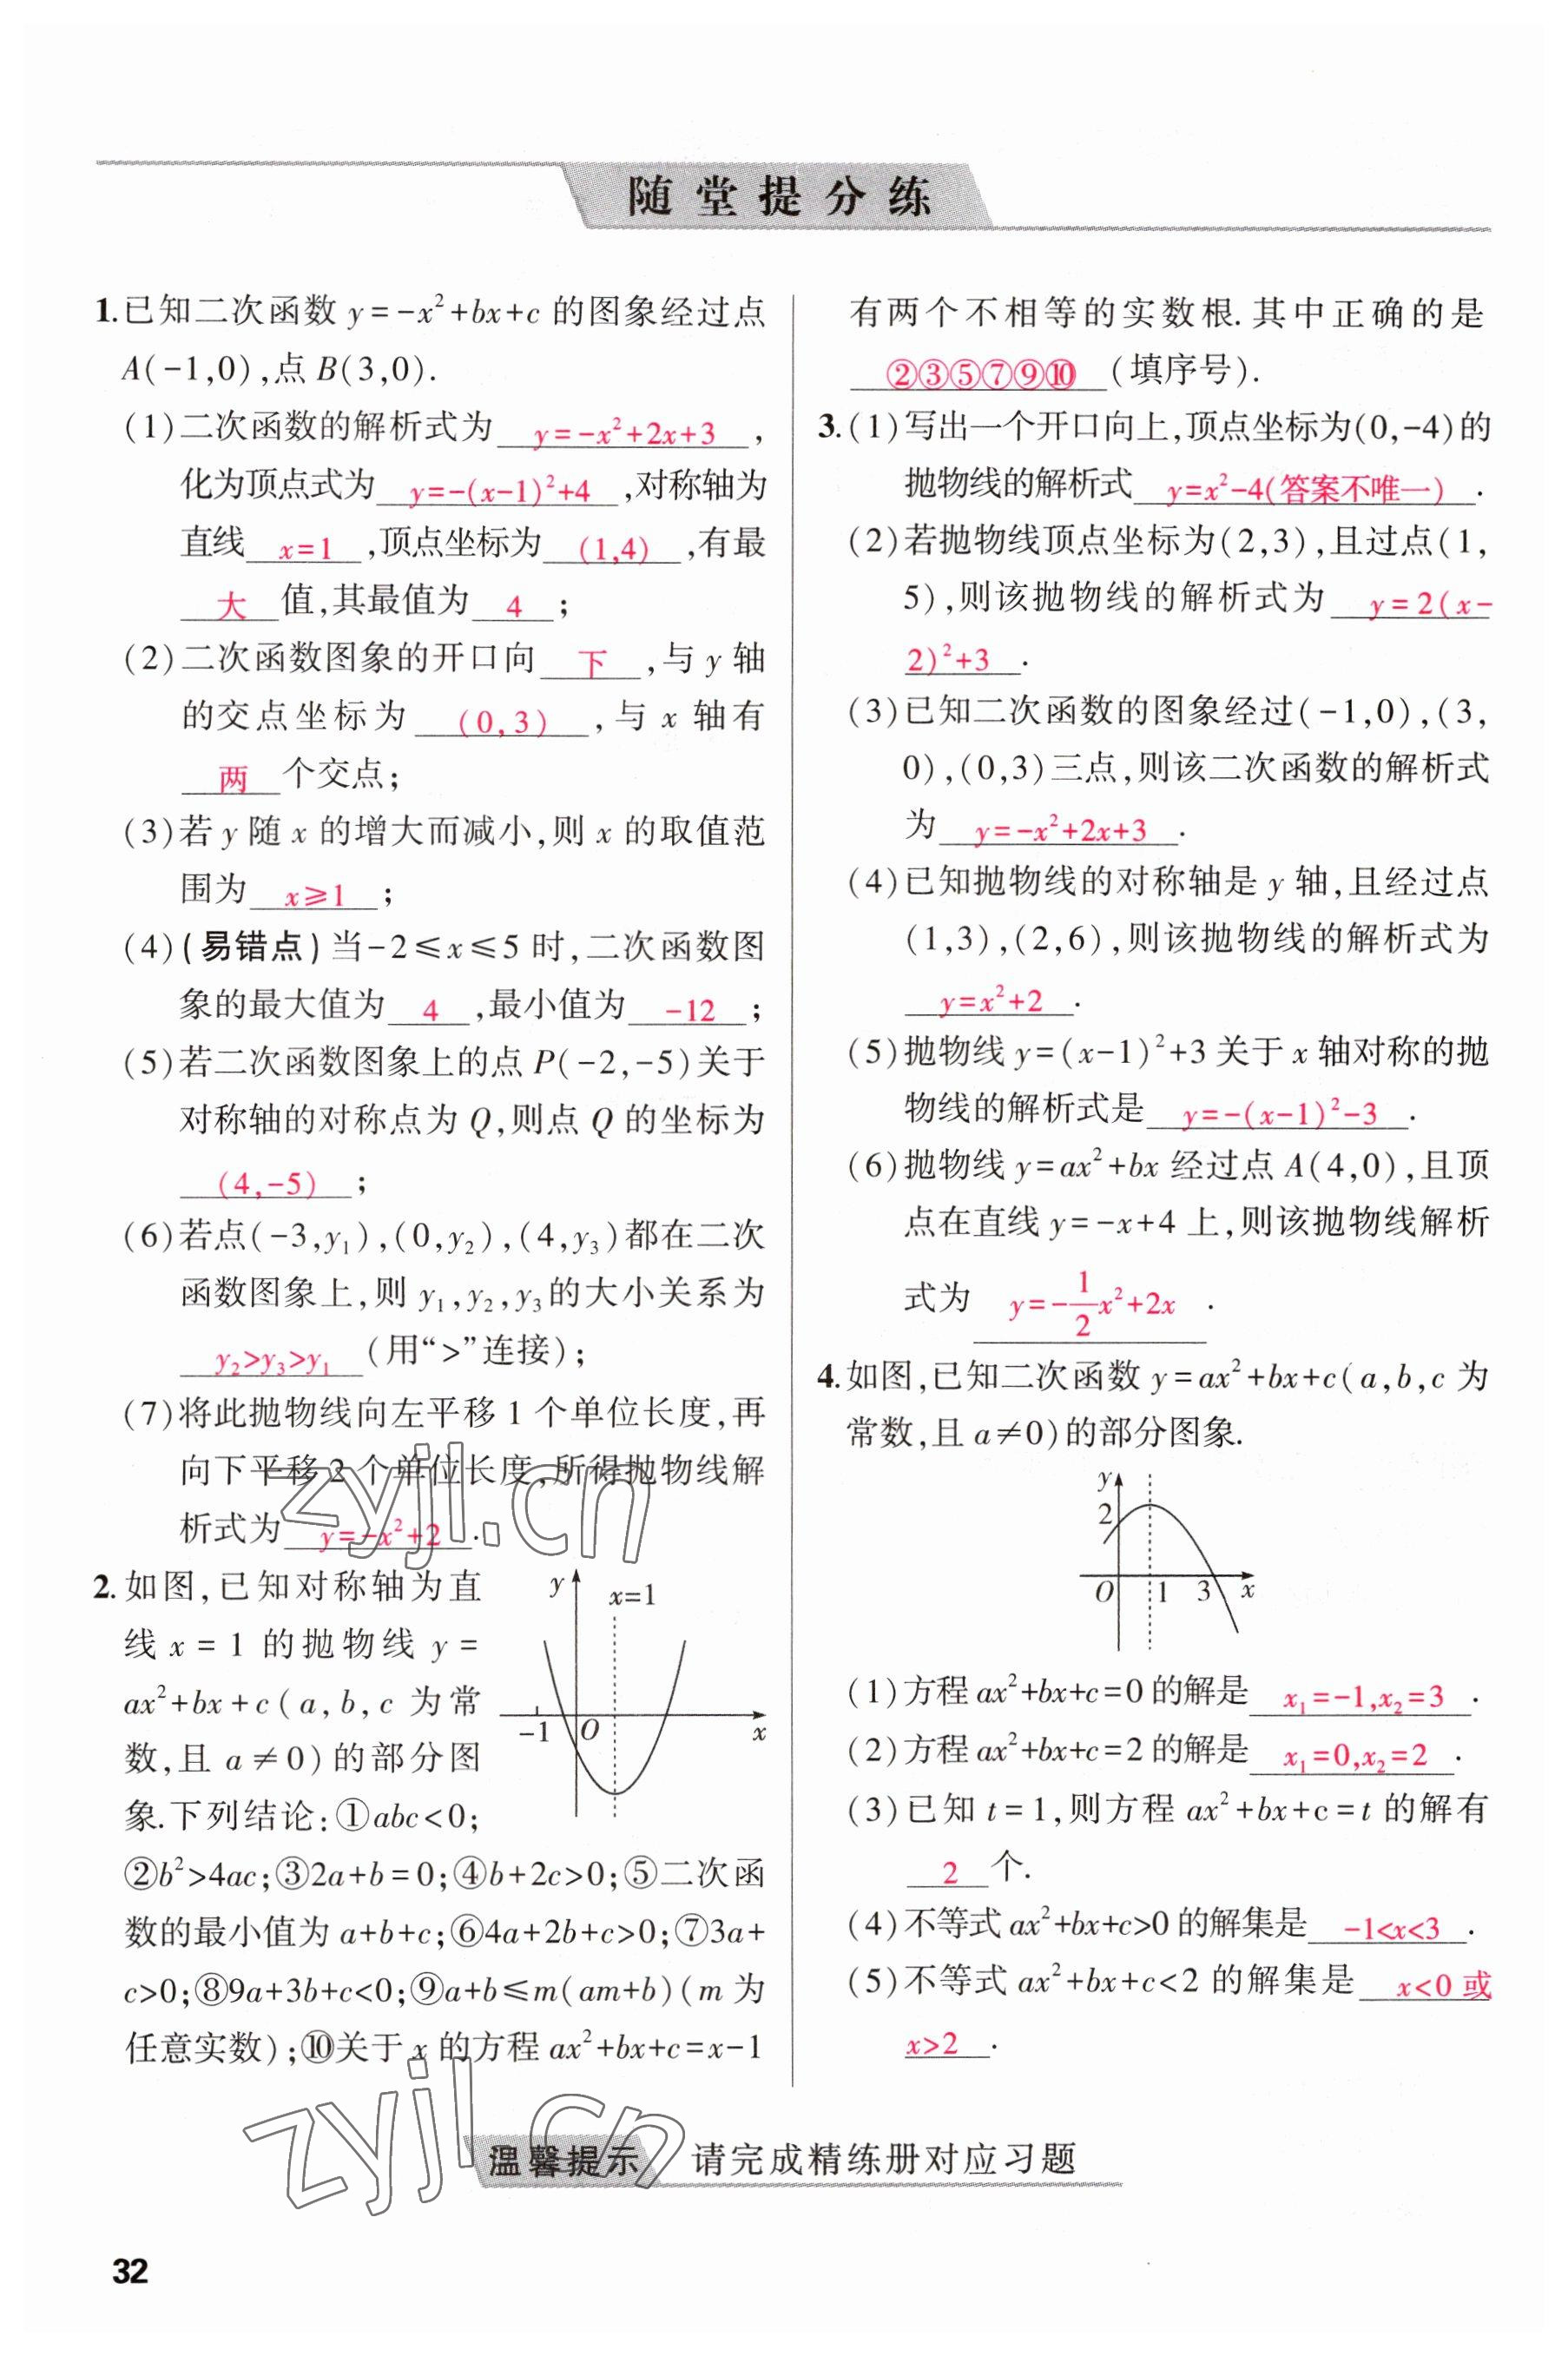 随堂提分练
1.已知二次函数 y=-x²+bx+c 的图象经过点
A(-1,0),点 B(3,0).
(1)二次函数的解析式为 y=-x²+2x+3 ,
化为顶点式为 y=-(x-1)²+4 ,对称轴为
直线 x=1 ,顶点坐标为 (1,4) ,有最
大 值,其最值为 4 ;
(2)二次函数图象的开口向 下 ,与 y 轴
的交点坐标为 (0,3) ,与 x 轴有
两 个交点;
(3)若 y 随 x 的增大而减小,则 x 的取值范
围为 x≥1 ;
(4)(易错点)当-2≤x≤5 时,二次函数图
象的最大值为 4 ,最小值为 -12 ;
(5)若二次函数图象上的点 P(-2,-5)关于
对称轴的对称点为 Q,则点 Q 的坐标为
(4,-5) ;
(6)若点(-3,y₁),(0,y₂),(4,y₃)都在二次
函数图象上,则 y₁,y₂,y₃的大小关系为
y₂>y₃>y₁ (用“>”连接);
(7)将此抛物线向左平移 1 个单位长度,再
向下平移 2 个单位长度,所得抛物线解
析式为 y=-x²+2 .
2.如图,已知对称轴为直
线 x=1 的抛物线 y=
ax²+bx+c(a,b,c 为常
数,且 a≠0)的部分图
象.下列结论:①abc<0;
y
x=1
-1
O
x
②b²>4ac;③2a+b=0;④b+2c>0;⑤二次函
数的最小值为 a+b+c;⑥4a+2b+c>0;⑦3a+
c>0;⑧9a+3b+c<0;⑨a+b≤m(am+b)(m 为
任意实数);⑩关于 x 的方程 ax²+bx+c=x-1
有两个不相等的实数根.其中正确的是
②③⑤⑦⑨⑩ (填序号).
3.(1)写出一个开口向上,顶点坐标为(0,-4)的
抛物线的解析式 y=x²-4(答案不唯一) .
(2)若抛物线顶点坐标为(2,3),且过点(1,
5),则该抛物线的解析式为 y=2(x-
2)²+3 .
(3)已知二次函数的图象经过(-1,0),(3,
0),(0,3)三点,则该二次函数的解析式
为 y=-x²+2x+3 .
(4)已知抛物线的对称轴是 y 轴,且经过点
(1,3),(2,6),则该抛物线的解析式为
y=x²+2 .
(5)抛物线 y=(x-1)²+3 关于 x 轴对称的抛
物线的解析式是 y=-(x-1)²-3 .
(6)抛物线 y=ax²+bx 经过点 A(4,0),且顶
点在直线 y=-x+4 上,则该抛物线解析
式为 y=-1/2x²+2x .
4.如图,已知二次函数 y=ax²+bx+c(a,b,c 为
常数,且 a≠0)的部分图象.
y
2
O
1
3
x
(1)方程 ax²+bx+c=0 的解是 x₁=-1,x₂=3 .
(2)方程 ax²+bx+c=2 的解是 x₁=0,x₂=2 .
(3)已知 t=1,则方程 ax²+bx+c=t 的解有
2 个.
(4)不等式 ax²+bx+c>0 的解集是 -1<x<3 .
(5)不等式 ax²+bx+c<2 的解集是 x<0 或
x>2 .
zyjl.cn
zyjl.cn
温馨提示 请完成精练册对应习题
32